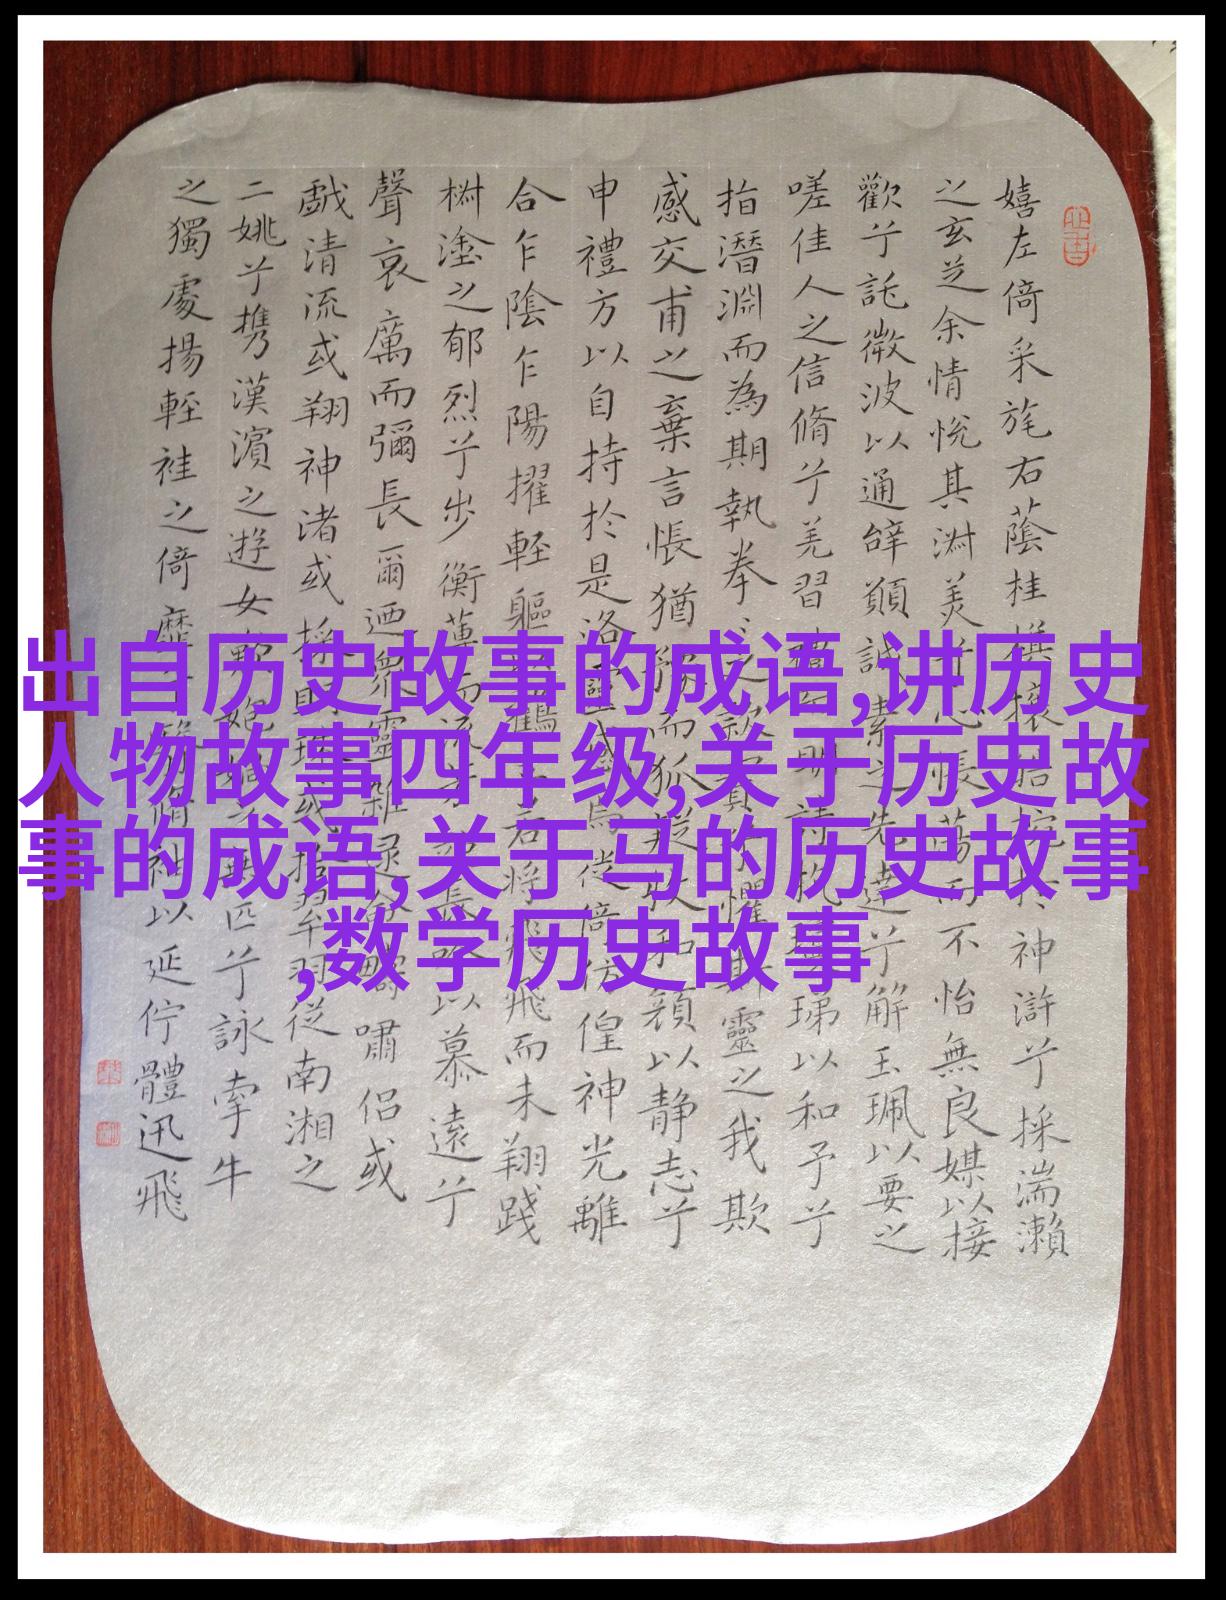 出自历史故事的成语,讲历史
人物故事四年级,关于历史故
事的成语,关于马的历史故事
,数学历史故事
嬉左倚采旄右蔭桂 神滸兮採湍瀨
之玄芝余情悅其淑美 不怡無良媒以接
歡兮託微波以通辭願誠素之先達兮解玉珮以要之
嗟佳人之信脩兮羌習 以和予兮
指潛淵而為期執拳 懼 靈之我欺
感交甫之棄言悵猶豫而狐 和顏以静志兮
申禮方以自持於是洛靈 焉徙倚彷徨神光離
合乍陰乍陽擢輕軀 鶴 若將飛飛而未翔踐
樹塗之郁烈兮步衡薄而流 長 以慕遠兮
聲哀厲而彌長爾迺衆靈雜 嘯侶或
戲清流或翔神渚或採 珠或拾翠羽從南湘之
二姚兮携漢濱之遊女 匹兮詠牽牛
之獨處揚輕袿之倚靡 脩袖以延佇體迅飛